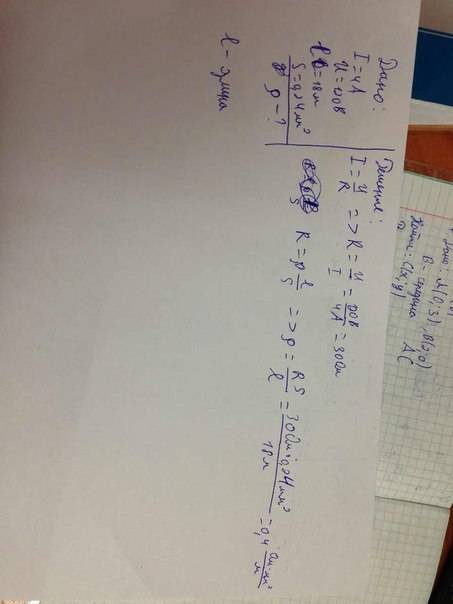 Дано:
I = 4А
U = 120В
l = 18м
S = 0,24мм²
ρ - ?
l - длина
Решение:
I = U/R => R = U/I = 120В/4А = 30Ом
R = ρ l/S => ρ = RS/l = 30Ом · 0,24мм²/18м = 0,4 Ом·мм²/м
Дано: A(0;3), B(2;0)
B - середина AC
Найти: C(x;y)